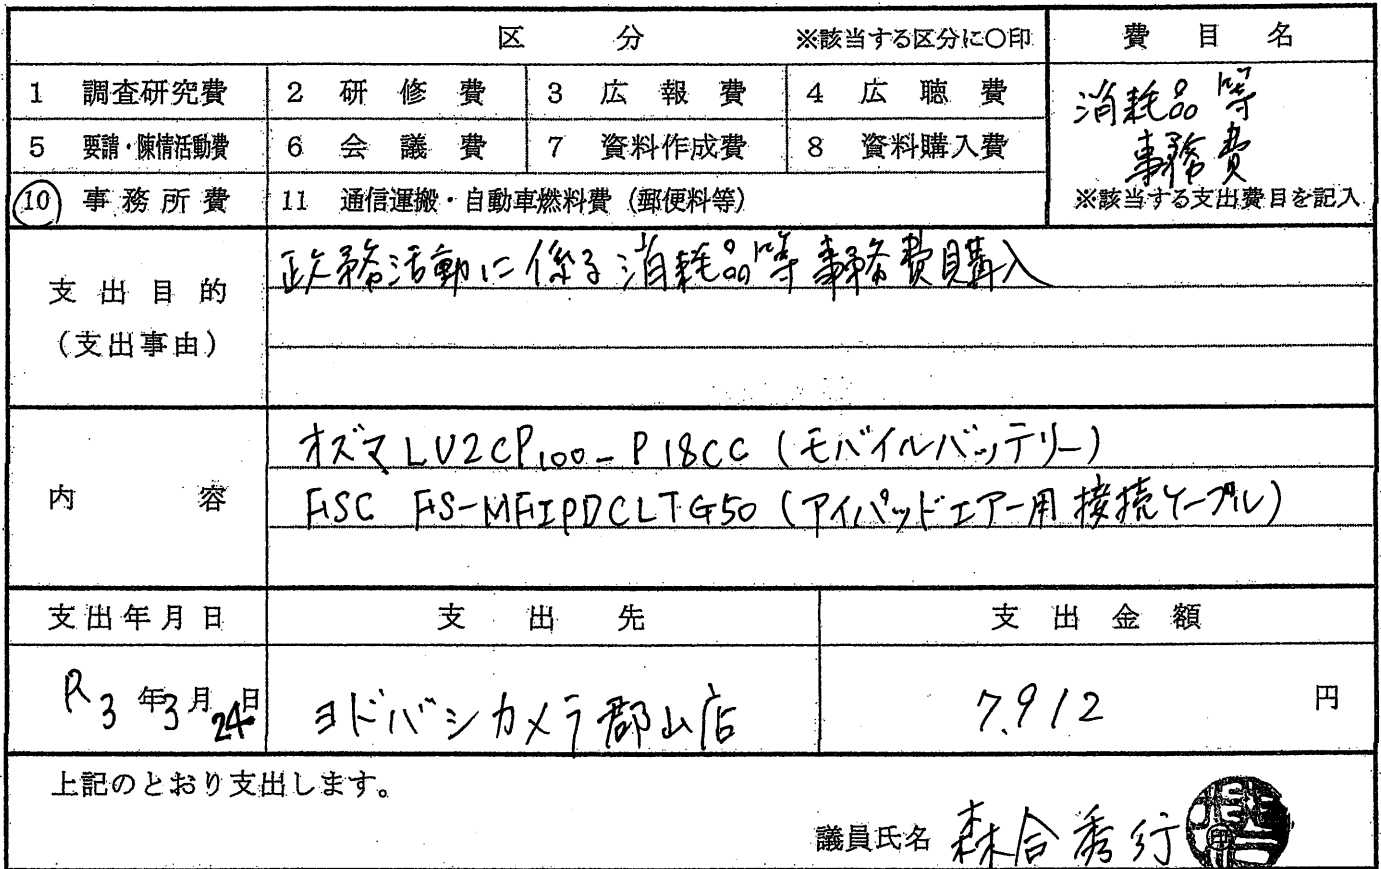 区 分 ※該当する区分に○印
費 目 名
1 調査研究費 2 研修費 3 広報費 4 広聴費
5 要請・陳情活動費 6 会議費 7 資料作成費 8 資料購入費
10 事務所費 11 通信運搬・自動車燃料費（郵便料等）
消耗品等
事務費
※該当する支出費目を記入
支出目的
（支出事由）
政務活動に係る消耗品等事務費購入
内 容
オズマ LV2CP100-P18CC (モバイルバッテリー)
(アイパッドエアー用接続ケーブル)
支出年月日 支出先 支出金額
R3年3月24日 ヨドバシカメラ郡山店 7,912 円
上記のとおり支出します。
議員氏名 森合秀行
印